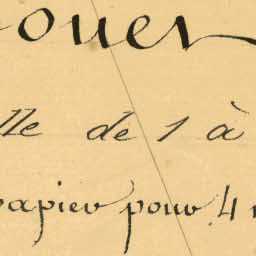 ouer
lle de 1 à
papier pour 4